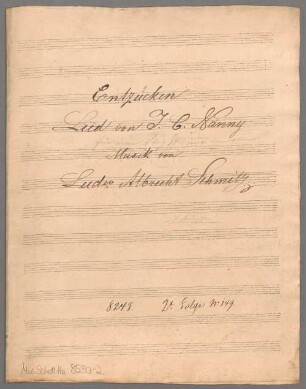 Entzücken
Lied von J. C. Nänny
Musik von
Ludw. Albrecht Schmitz
8249. V. Folge Nº 149
Mus.Schott.Ha 8530-2